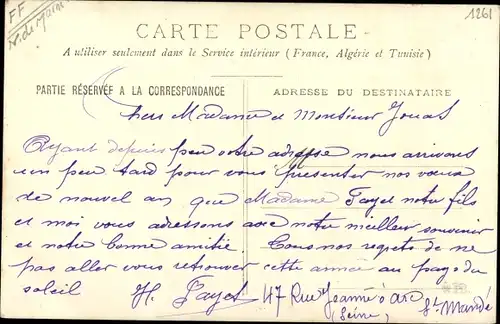 FF
V. de Marne
1261
CARTE POSTALE
A utiliser seulement dans le Service intérieur (France, Algérie et Tunisie)
PARTIE RÉSERVÉE A LA CORRESPONDANCE
ADRESSE DU DESTINATAIRE
Chers Madame et Monsieur
Ayant depuis peu votre adresse nous arrivons
un peu tard pour vous présenter nos vœux
de nouvel an, que Madame Fayet notre fils
et moi vous adressons avec notre meilleur souvenir
et notre bonne amitié Tous nos regrets de ne
pas aller vous retrouver cette année au pays du
soleil H. Fayet 47 Rue Jeanne d'arc
(Seine) St Mandé